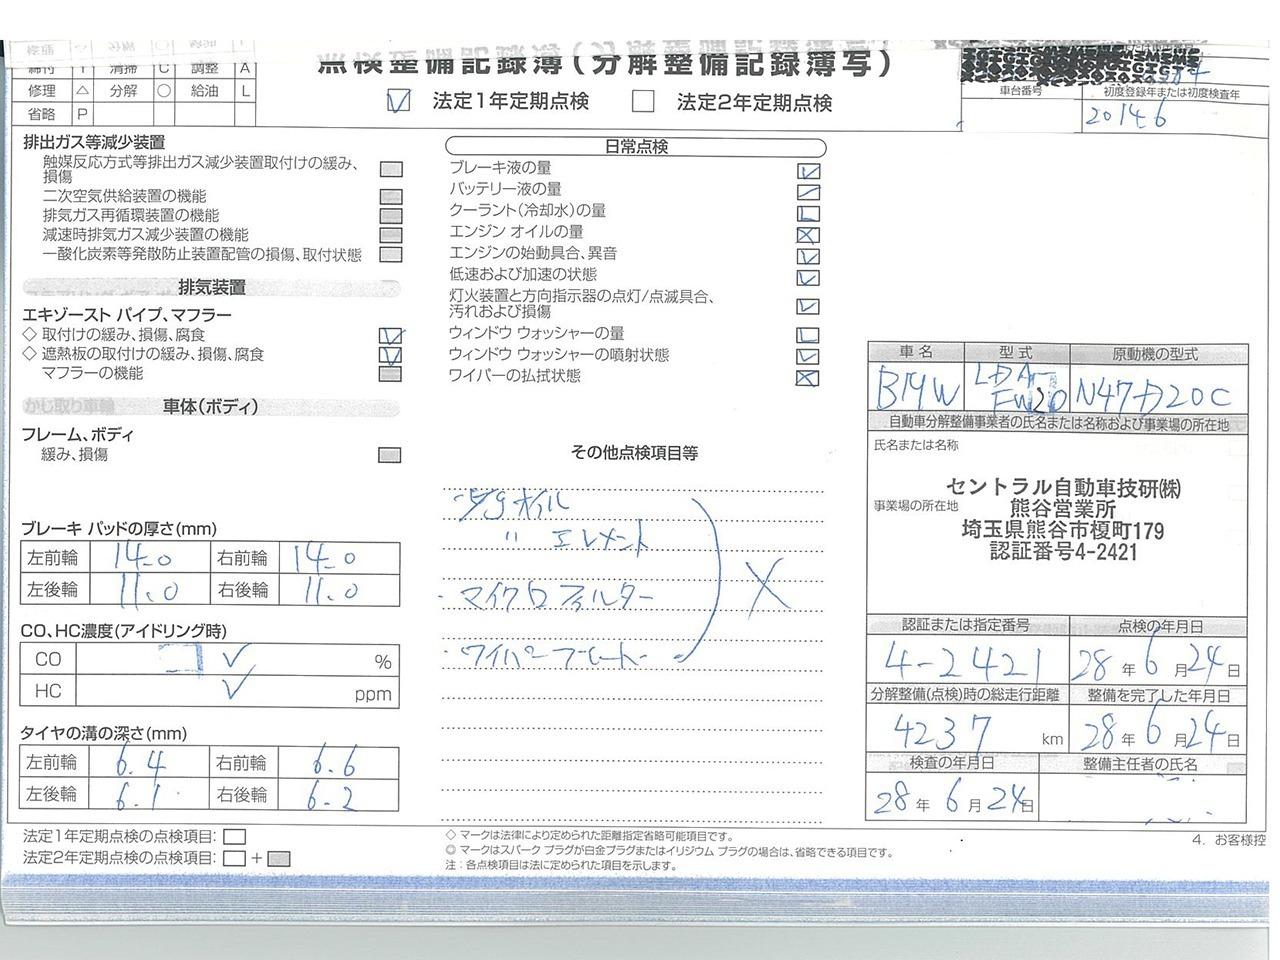 点検整備記録簿(分解整備記録簿写)
締付 T 清掃 C 調整 A
修理 △ 分解 ○ 給油 L
省略 P
法定1年定期点検 法定2年定期点検
車台番号 初度登録年または初度検査年
2014 6
排出ガス等減少装置
触媒反応方式等排出ガス減少装置取付けの緩み、
損傷
二次空気供給装置の機能
排気ガス再循環装置の機能
減速時排気ガス減少装置の機能
一酸化炭素等発散防止装置配管の損傷、取付状態
排気装置
エキゾースト パイプ、マフラー
◇ 取付けの緩み、損傷、腐食
◇ 遮熱板の取付けの緩み、損傷、腐食
マフラーの機能
かじ取り車輪
車体(ボディ)
フレーム、ボディ
緩み、損傷
ブレーキ パッドの厚さ(mm)
左前輪 14.0 右前輪 14.0
左後輪 11.0 右後輪 11.0
CO、HC濃度(アイドリング時)
CO ✓ %
HC ✓ ppm
タイヤの溝の深さ(mm)
左前輪 6.4 右前輪 6.6
左後輪 6.1 右後輪 6.2
法定1年定期点検の点検項目:
法定2年定期点検の点検項目: +
日常点検
ブレーキ液の量
バッテリー液の量
クーラント(冷却水)の量
エンジン オイルの量
エンジンの始動具合、異音
低速および加速の状態
灯火装置と方向指示器の点灯/点滅具合、
汚れおよび損傷
ウィンドウ ウォッシャーの量
ウィンドウ ウォッシャーの噴射状態
ワイパーの払拭状態
その他点検項目等
オイル
〃 エレメント
・マイクロフィルター
・ワイパーブレード
◇ マークは法律により定められた距離指定省略可能項目です。
◎ マークはスパーク プラグが白金プラグまたはイリジウム プラグの場合は、省略できる項目です。
注:各点検項目は法に定められた項目を示します。
車名 型式 原動機の型式
BMW LDA-FW20 N47D20C
自動車分解整備事業者の氏名または名称および事業場の所在地
氏名または名称
事業場の所在地
セントラル自動車技研㈱
熊谷営業所
埼玉県熊谷市榎町179
認証番号4-2421
認証または指定番号 点検の年月日
4-2421 28年6月24日
分解整備(点検)時の総走行距離 整備を完了した年月日
4237 km 28年6月24日
検査の年月日 整備主任者の氏名
28年6月24日
4. お客様控